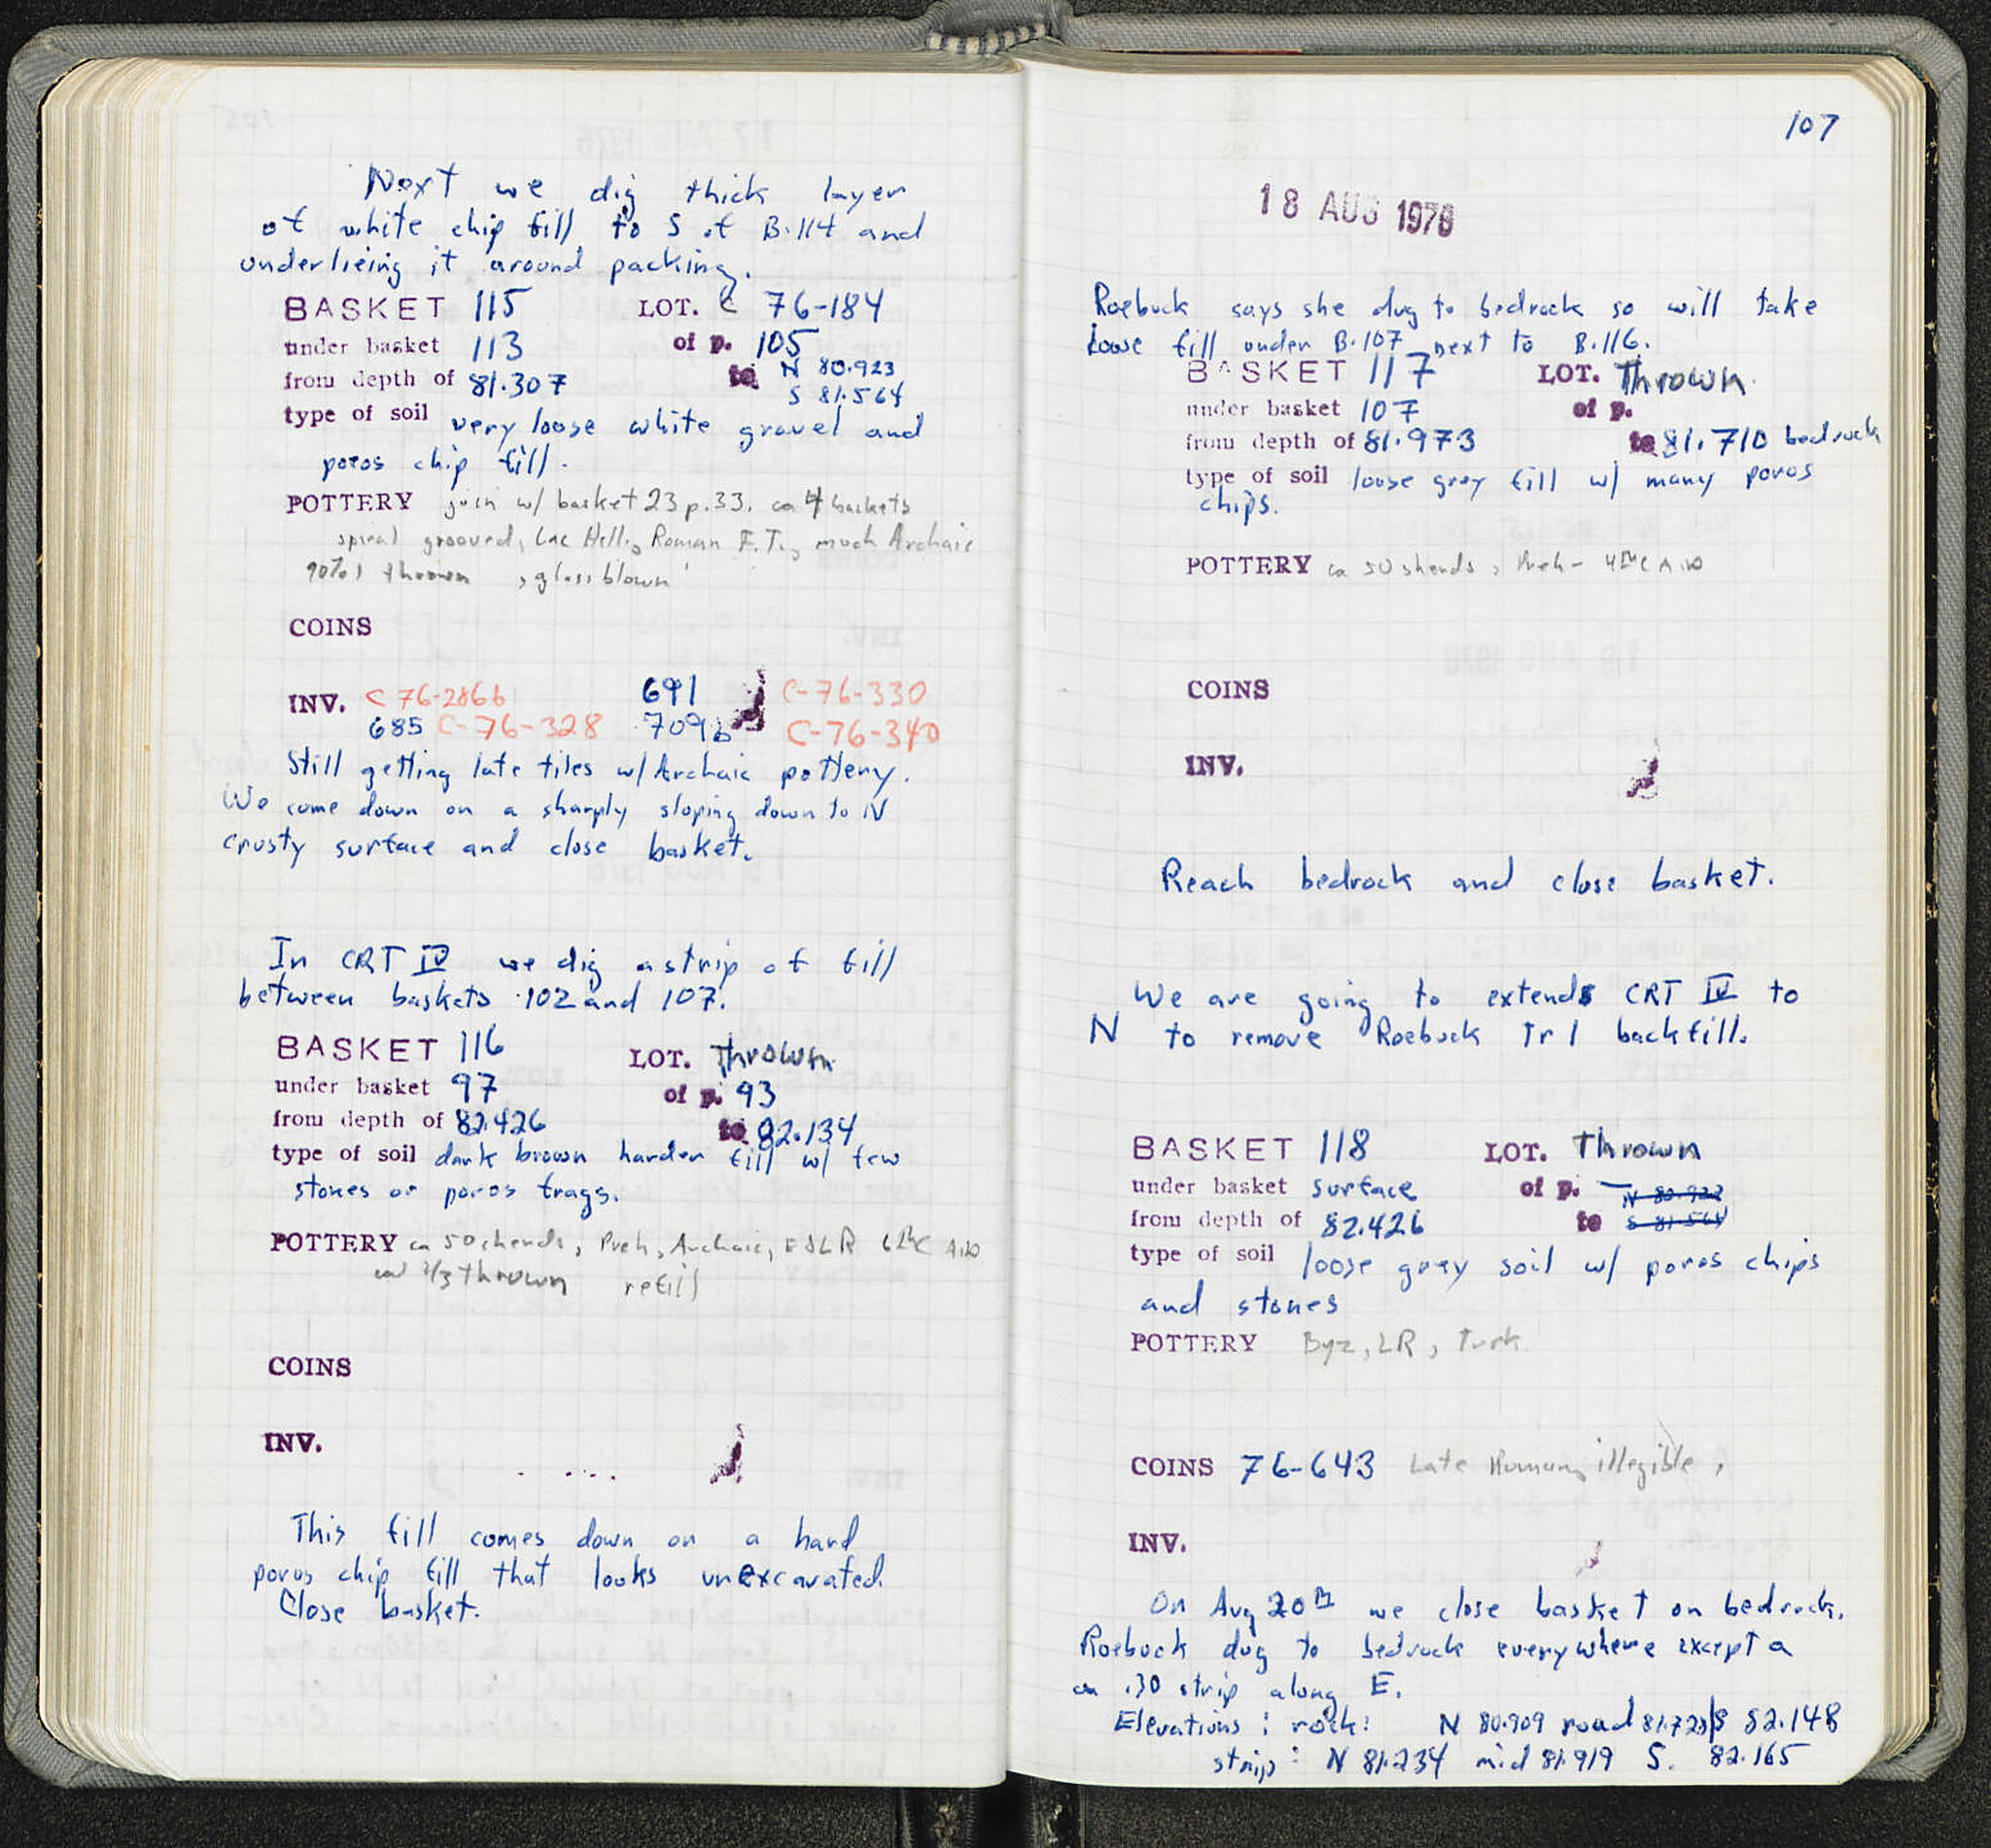 Next we dig thick layer
of white chip fill to S of B.114 and
underlieing it around packing.
BASKET 115 LOT. C 76-184
under basket 113 of p. 105
from depth of 81.307 to N 80.923
S 81.564
type of soil very loose white gravel and
poros chip fill.
POTTERY join w/ basket 23 p.33. ca 4 baskets
spiral grooved, Hell., Roman F.T., much Archaic
90% thrown , glass blown
COINS
INV. C 76-286b 691 C-76-330
685 C-76-328 709b C-76-340
Still getting late tiles w/ Archaic pottery.
We come down on a sharply sloping down to N
crusty surface and close basket.
In CRT IV we dig a strip of fill
between baskets 102 and 107.
BASKET 116 LOT. Thrown
under basket 97 of p. 93
from depth of 82.426 to 82.134
type of soil dark brown harder fill w/ few
stones or poros frags.
POTTERY ca 50 sherds, Preh, Archaic, E&LR 6thC A.D
ca 2/3 thrown refill
COINS
INV.
This fill comes down on a hard
poros chip fill that looks unexcavated.
Close basket.
107
18 AUG 1976
Roebuck says she dug to bedrock so will take
loose fill under B.107 next to B.116.
BASKET 117 LOT. Thrown
under basket 107 of p.
from depth of 81.973 to 81.710 bedrock
type of soil loose grey fill w/ many poros
chips.
POTTERY ca 50 sherds, Preh - 4thC A.D
COINS
INV.
Reach bedrock and close basket.
We are going to extend CRT IV to
N to remove Roebuck Tr 1 backfill.
BASKET 118 LOT. Thrown
under basket surface of p. — N 80.923
from depth of 82.426 to S 81.564
type of soil loose grey soil w/ poros chips
and stones
POTTERY Byz, LR, Turk.
COINS 76-643 Late Roman, illegible.
INV.
On Aug 20th we close basket on bedrock.
Roebuck dug to bedrock everywhere except a
.30 strip along E.
Elevations: rock: N 80.909 road 81.728 S 82.148
strip: N 81.234 mid 81.919 S. 82.165